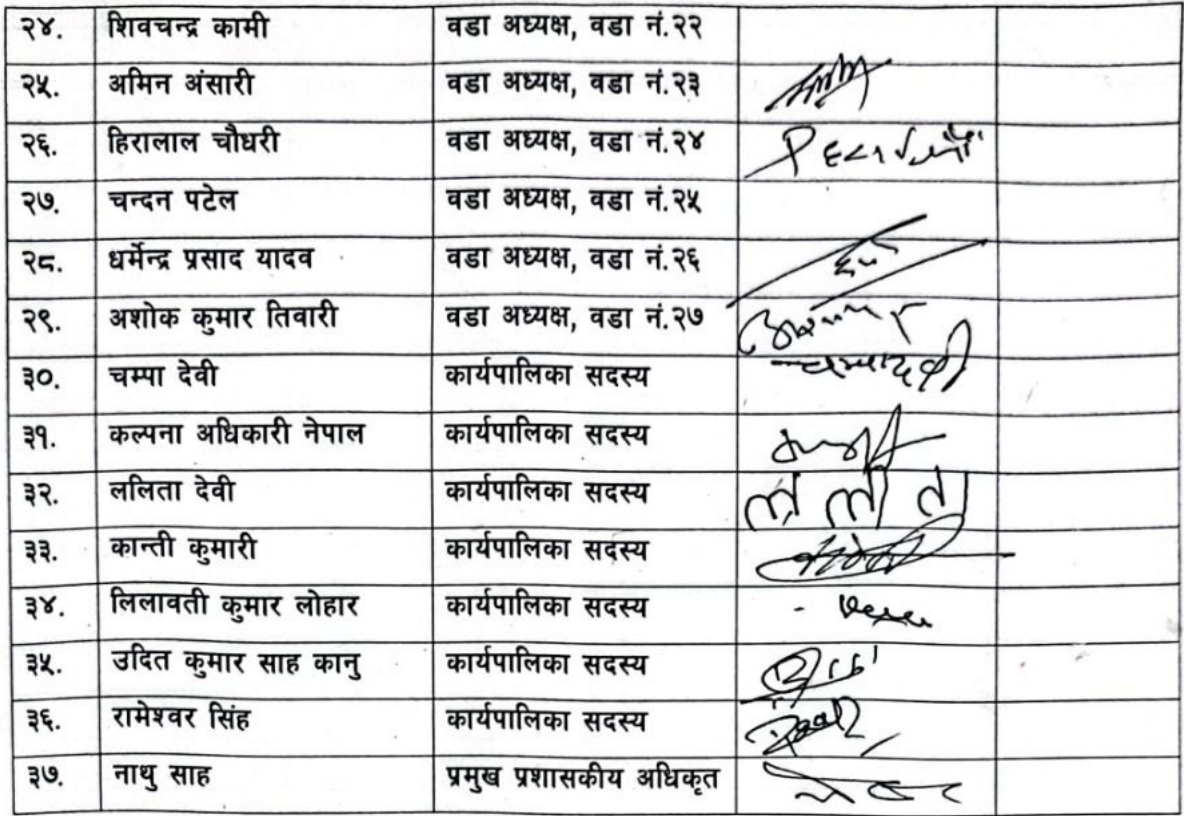 २४. शिवचन्द्र कामी वडा अध्यक्ष, वडा नं.२२
२५. अमिन अंसारी वडा अध्यक्ष, वडा नं.२३
२६. हिरालाल चौधरी वडा अध्यक्ष, वडा नं.२४
२७. चन्दन पटेल वडा अध्यक्ष, वडा नं.२५
२८. धर्मेन्द्र प्रसाद यादव वडा अध्यक्ष, वडा नं.२६
२९. अशोक कुमार तिवारी वडा अध्यक्ष, वडा नं.२७
३०. चम्पा देवी कार्यपालिका सदस्य
३१. कल्पना अधिकारी नेपाल कार्यपालिका सदस्य
३२. ललिता देवी कार्यपालिका सदस्य ललीता
३३. कान्ती कुमारी कार्यपालिका सदस्य
३४. लिलावती कुमार लोहार कार्यपालिका सदस्य
३५. उदित कुमार साह कानु कार्यपालिका सदस्य
३६. रामेश्वर सिंह कार्यपालिका सदस्य
३७. नाथु साह प्रमुख प्रशासकीय अधिकृत